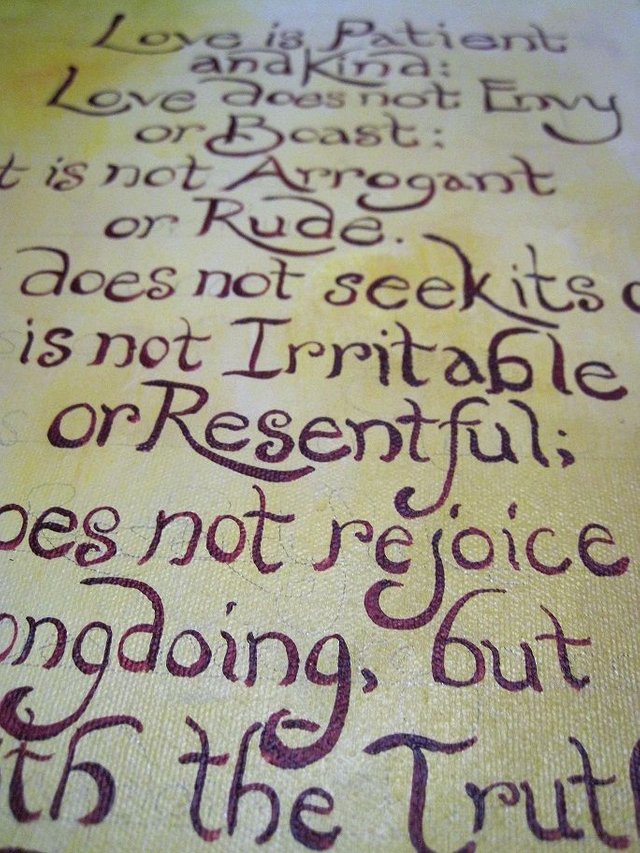 Love is Patient
and Kind:
Love does not Envy
or Boast:
t is not Arrogant
or Rude.
does not seek its o
is not Irritable
or Resentful;
oes not rejoice
ongdoing, but
ith the Truth